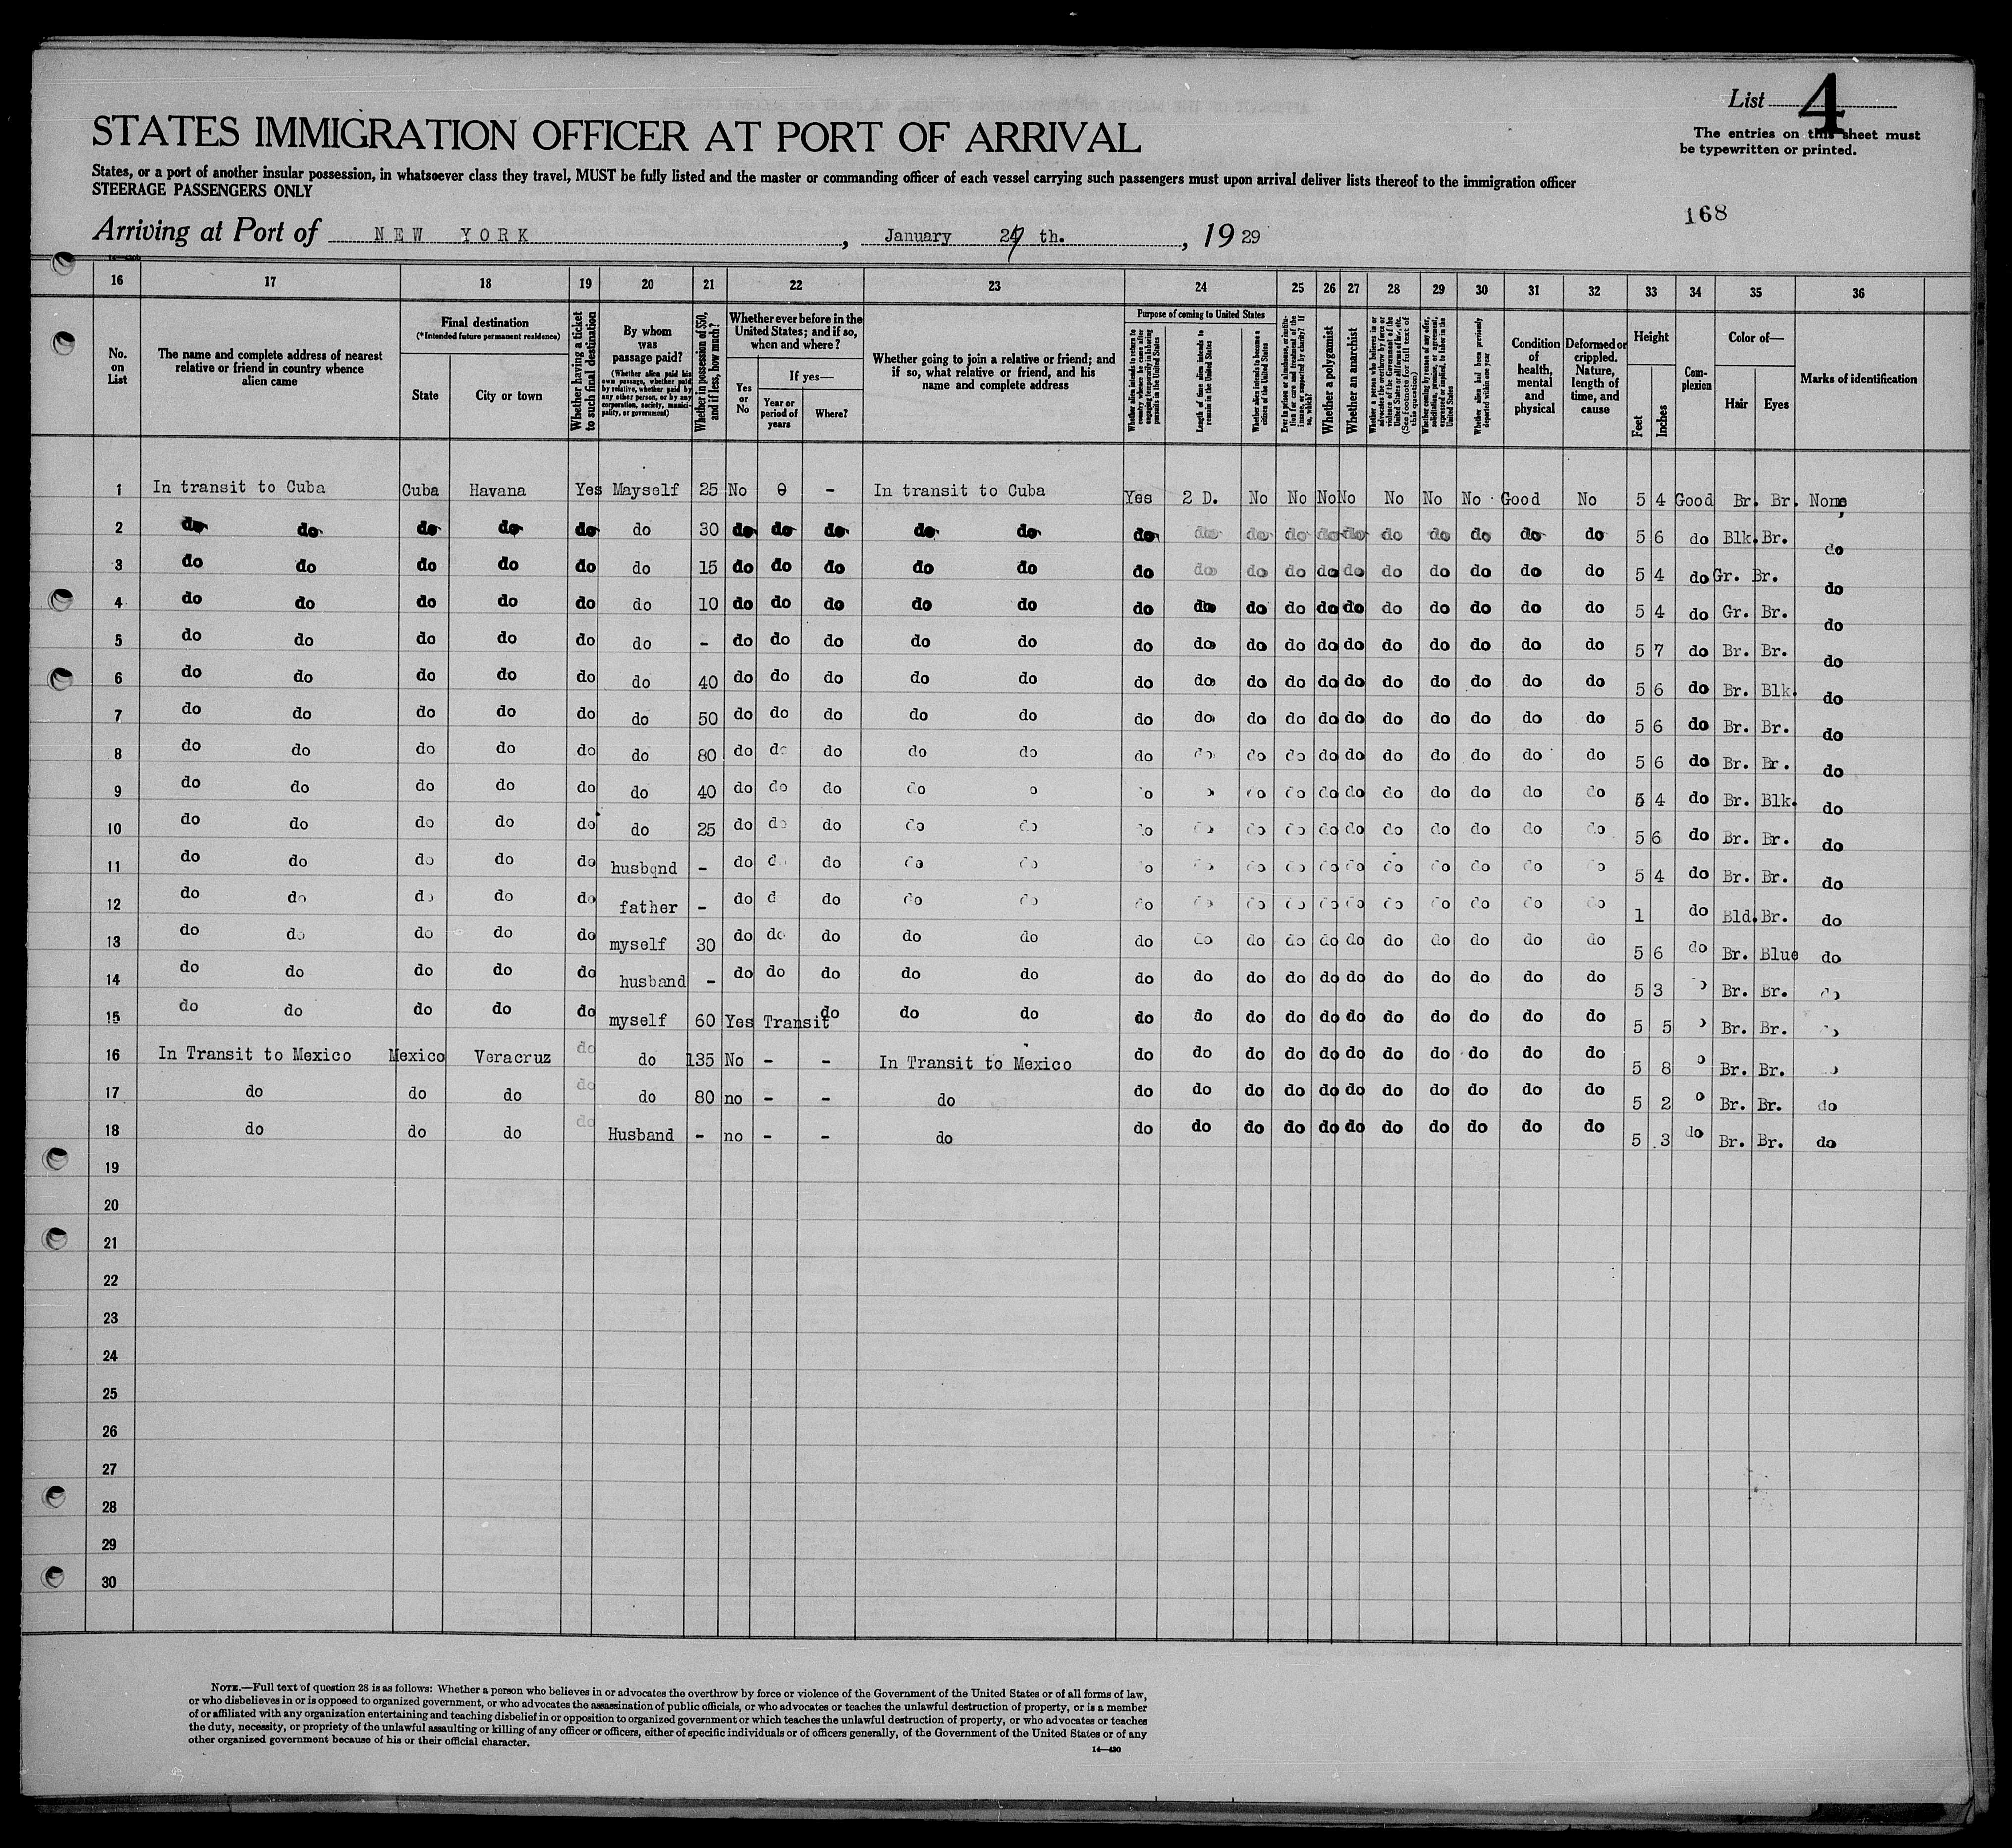 List 4
The entries on this sheet must
be typewritten or printed.
STATES IMMIGRATION OFFICER AT PORT OF ARRIVAL
States, or a port of another insular possession, in whatsoever class they travel, MUST be fully listed and the master or commanding officer of each vessel carrying such passengers must upon arrival deliver lists thereof to the immigration officer
STEERAGE PASSENGERS ONLY
168
Arriving at Port of NEW YORK, January 27 th., 19 29
16 17 18 19 20 21 22 23 24 25 26 27 28 29 30 31 32 33 34 35 36
No. on List
The name and complete address of nearest relative or friend in country whence alien came
Final destination
(*Intended future permanent residence)
State
City or town
Whether having a ticket to such final destination
By whom was passage paid?
(Whether alien paid his own passage, whether paid by relative, whether paid by any other person, or by any corporation, society, municipality, or government)
Whether in possession of $50, and if less, how much?
Whether ever before in the United States; and if so, when and where?
Yes or No
If yes—
Year or period of years
Where?
Whether going to join a relative or friend; and if so, what relative or friend, and his name and complete address
Purpose of coming to United States
Whether alien intends to return to country whence he came after engaging temporarily in laboring pursuits in the United States
Length of time alien intends to remain in the United States
Whether alien intends to become a citizen of the United States
Ever in prison or almshouse, or institution for care and treatment of the insane, or supported by charity? If so, which?
Whether a polygamist
Whether an anarchist
Whether a person who believes in or advocates the overthrow by force or violence of the Government of the United States or all forms of law, etc. (See footnote for full text of this question)
Whether coming by reason of any offer, solicitation, promise, or agreement, expressed or implied, to labor in the United States
Whether alien had been previously deported within one year
Condition of health, mental and physical
Deformed or crippled. Nature, length of time, and cause
Height
Feet
Inches
Complexion
Color of—
Hair
Eyes
Marks of identification
1 In transit to Cuba Cuba Havana Yes Mayself 25 No 0 - In transit to Cuba Yes 2 D. No No No No No No No Good No 5 4 Good Br. Br. None
2 do do do do do do 30 do do do do do do do do do do do do do do do do 5 6 do Blk. Br. do
3 do do do do do do 15 do do do do do do do do do do do do do do do do 5 4 do Gr. Br. do
4 do do do do do do 10 do do do do do do do do do do do do do do do do 5 4 do Gr. Br. do
5 do do do do do do - do do do do do do do do do do do do do do do do 5 7 do Br. Br. do
6 do do do do do do 40 do do do do do do do do do do do do do do do do 5 6 do Br. Blk. do
7 do do do do do do 50 do do do do do do do do do do do do do do do do 5 6 do Br. Br. do
8 do do do do do do 80 do do do do do do do do do do do do do do do do 5 6 do Br. Br. do
9 do do do do do do 40 do do do do do do do do do do do do do do do do 5 4 do Br. Blk. do
10 do do do do do do 25 do do do do do do do do do do do do do do do do 5 6 do Br. Br. do
11 do do do do do husbqnd - do do do do do do do do do do do do do do do do 5 4 do Br. Br. do
12 do do do do do father - do do do do do do do do do do do do do do do do 1 do Bld. Br. do
13 do do do do do myself 30 do do do do do do do do do do do do do do do do 5 6 do Br. Blue do
14 do do do do do husband - do do do do do do do do do do do do do do do do 5 3 do Br. Br. do
15 do do do do do myself 60 Yes Transit do do do do do do do do do do do do do do do 5 5 do Br. Br. do
16 In Transit to Mexico Mexico Veracruz do do 135 No - - In Transit to Mexico do do do do do do do do do do do 5 8 do Br. Br. do
17 do do do do do 80 no - - do do do do do do do do do do do do 5 2 do Br. Br. do
18 do do do do Husband - no - - do do do do do do do do do do do do 5 3 do Br. Br. do
19
20
21
22
23
24
25
26
27
28
29
30
NOTE.—Full text of question 28 is as follows: Whether a person who believes in or advocates the overthrow by force or violence of the Government of the United States or of all forms of law,
or who disbelieves in or is opposed to organized government, or who advocates the assassination of public officials, or who advocates or teaches the unlawful destruction of property, or is a member
of or affiliated with any organization entertaining and teaching disbelief in or opposition to organized government or which teaches the unlawful destruction of property, or who advocates or teaches
the duty, necessity, or propriety of the unlawful assaulting or killing of any officer or officers, either of specific individuals or of officers generally, of the Government of the United States or of any
other organized government because of his or their official character.
14—430